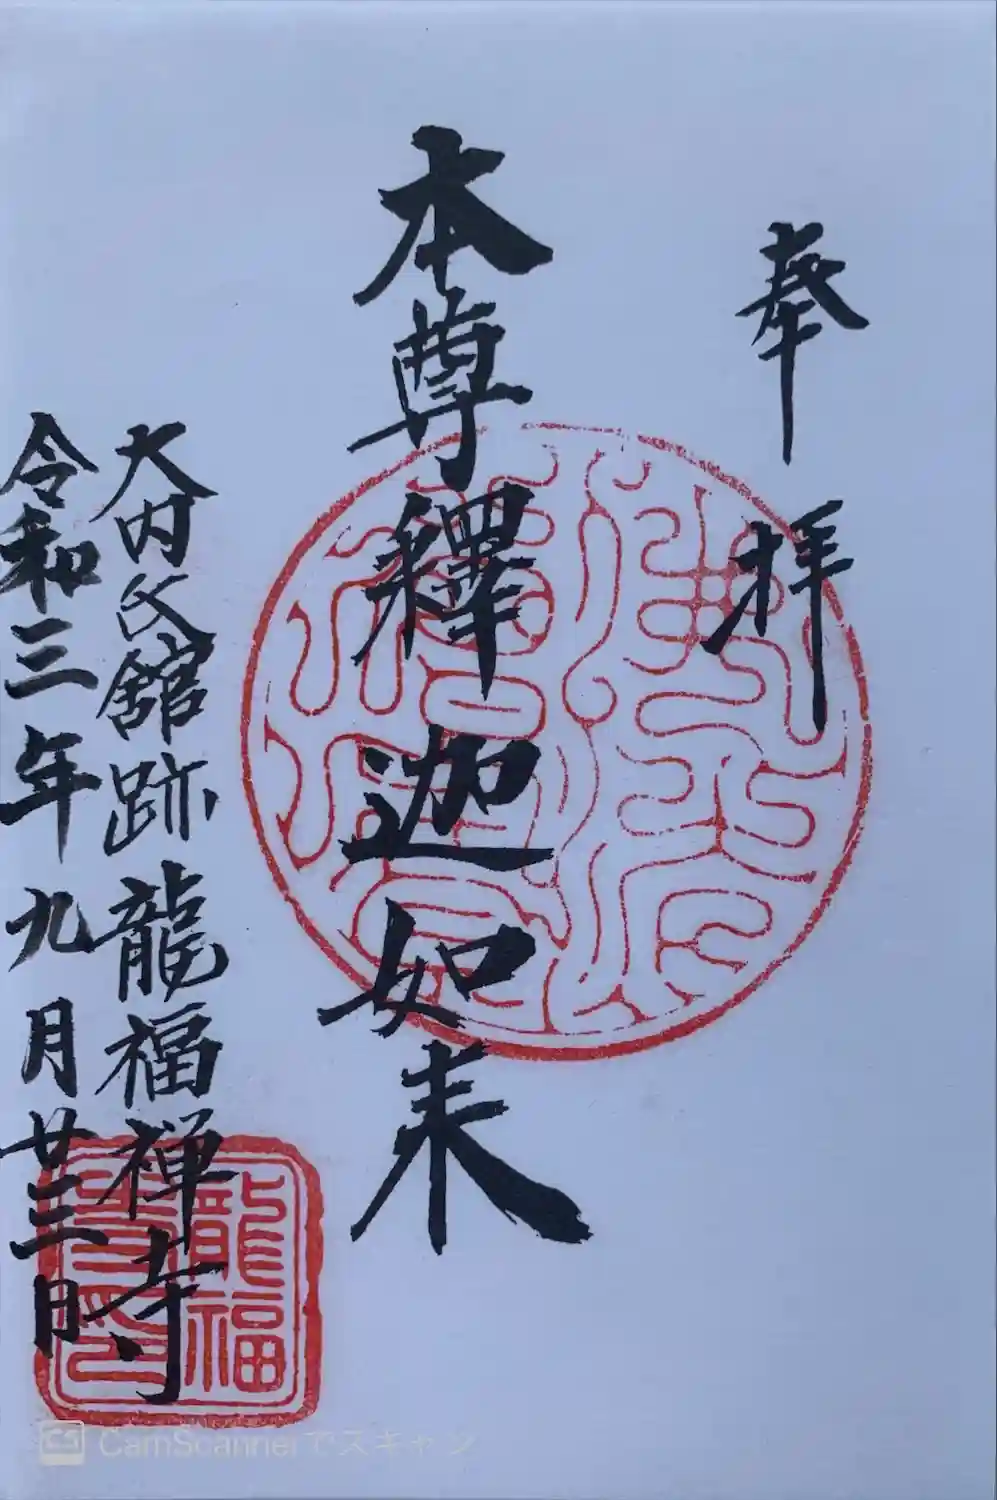 奉拝
本尊釋迦如来
大内氏舘跡龍福禅寺
令和三年九月廿三日
龍福
CamScannerでスキャン